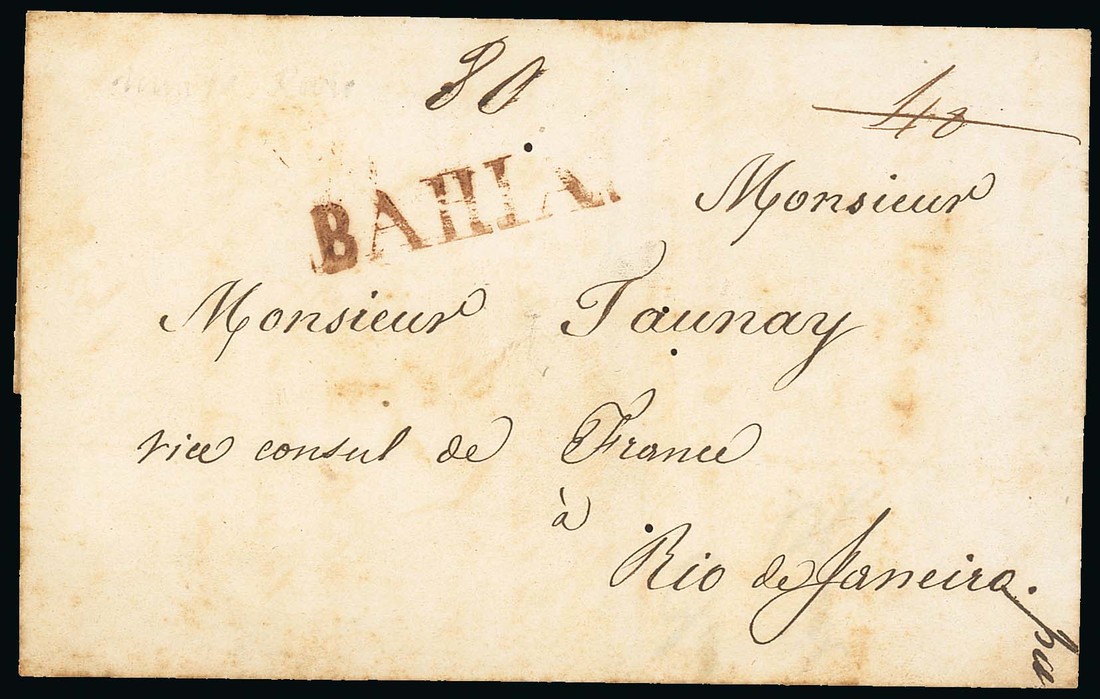 80
48
BAHIA.
Monsieur
Monsieur Taunay
vice consul de France
à
Rio de Janeiro.